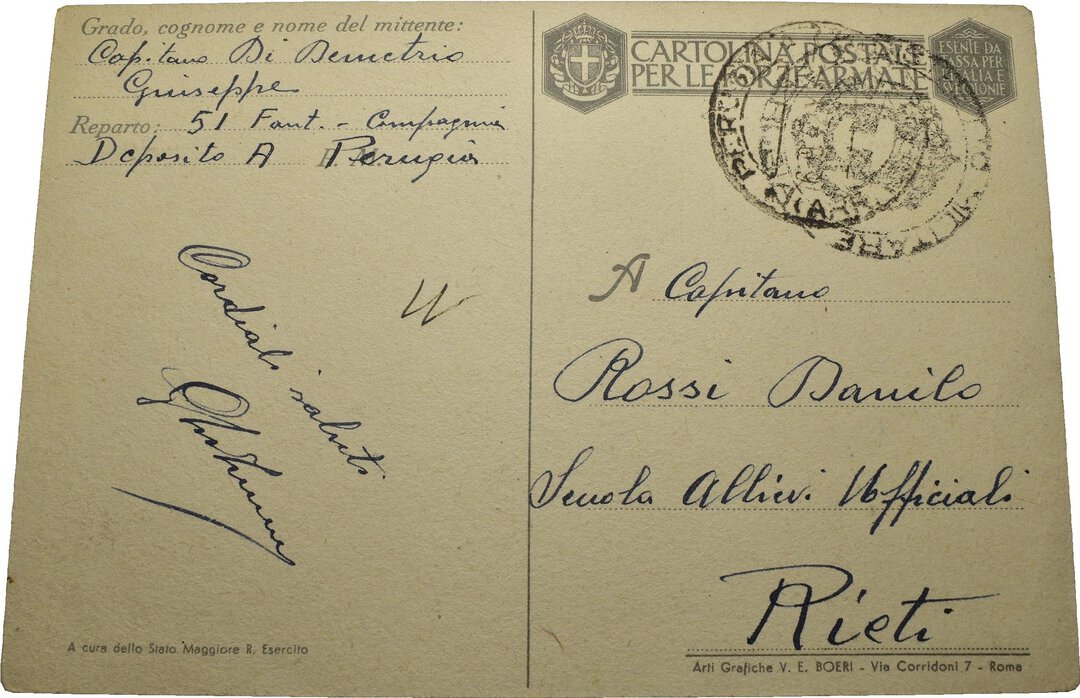 Grado, cognome e nome del mittente:
Capitano Di Demetrio
Giuseppe
Reparto: 51 Fant. - Compagnia
Deposito A Perugia
Cordiali saluti
A cura dello Stato Maggiore R. Esercito
CARTOLINA POSTALE
PER LE FORZE ARMATE
ESENTE DA
TASSA PER
L'ITALIA E
SUE COLONIE
MILITARE
A Capitano
Rossi Danilo
Scuola Allievi Ufficiali
Rieti
Arti Grafiche V. E. BOERI - Via Corridoni 7 - Roma